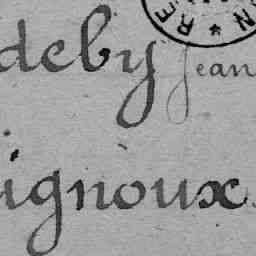 deby Jean
ignoux